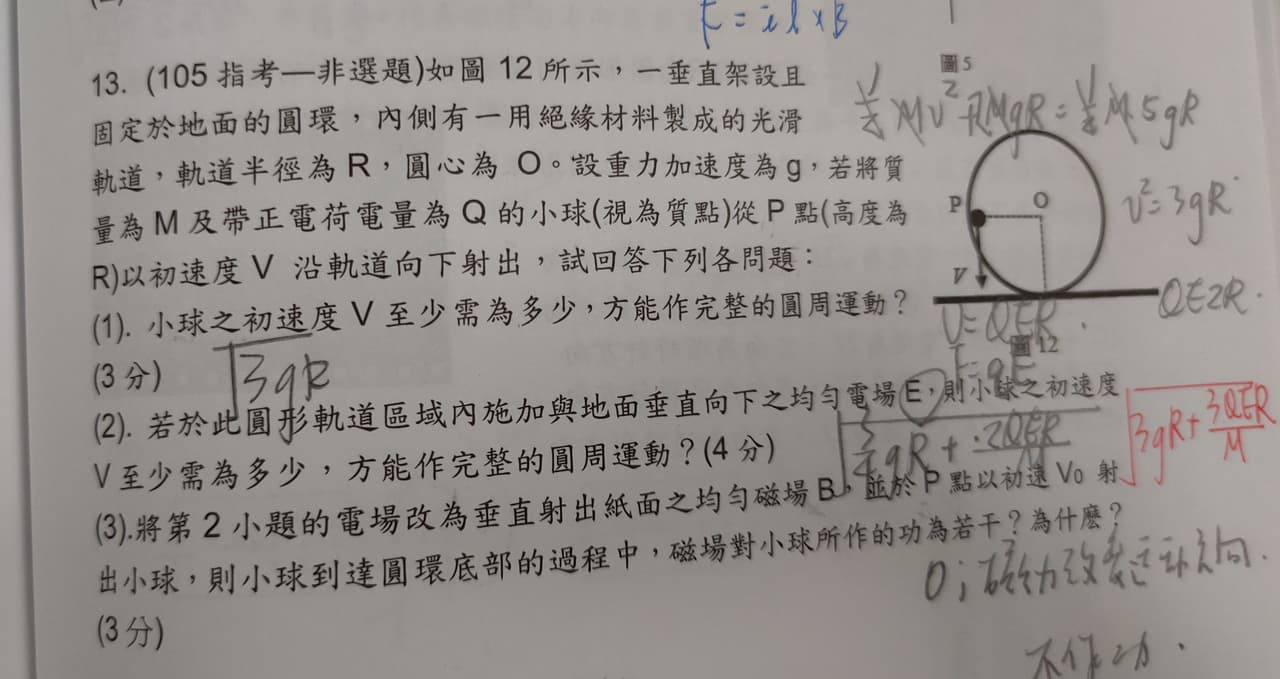 F = i l × B
圖 5
13. (105 指考—非選題)如圖 12 所示，一垂直架設且
固定於地面的圓環，內側有一用絕緣材料製成的光滑
軌道，軌道半徑為 R，圓心為 O。設重力加速度為 g，若將質
量為 M 及帶正電荷電量為 Q 的小球(視為質點)從 P 點(高度為
R)以初速度 V 沿軌道向下射出，試回答下列各問題：
(1). 小球之初速度 V 至少需為多少，方能作完整的圓周運動？
(3 分)
√3gR
½MV² + MgR = ½M5gR
V² = 3gR
P
O
V
QE2R
U = QER
圖 12
F = qE
(2). 若於此圓形軌道區域內施加與地面垂直向下之均勻電場 E，則小球之初速度
V 至少需為多少，方能作完整的圓周運動？(4 分)
√3gR + 2QER/M
√3gR + 3QER/M
(3).將第 2 小題的電場改為垂直射出紙面之均勻磁場 B，並於 P 點以初速 V₀ 射
出小球，則小球到達圓環底部的過程中，磁場對小球所作的功為若干？為什麼？
(3 分)
0；磁力改變運動方向.
不作功.